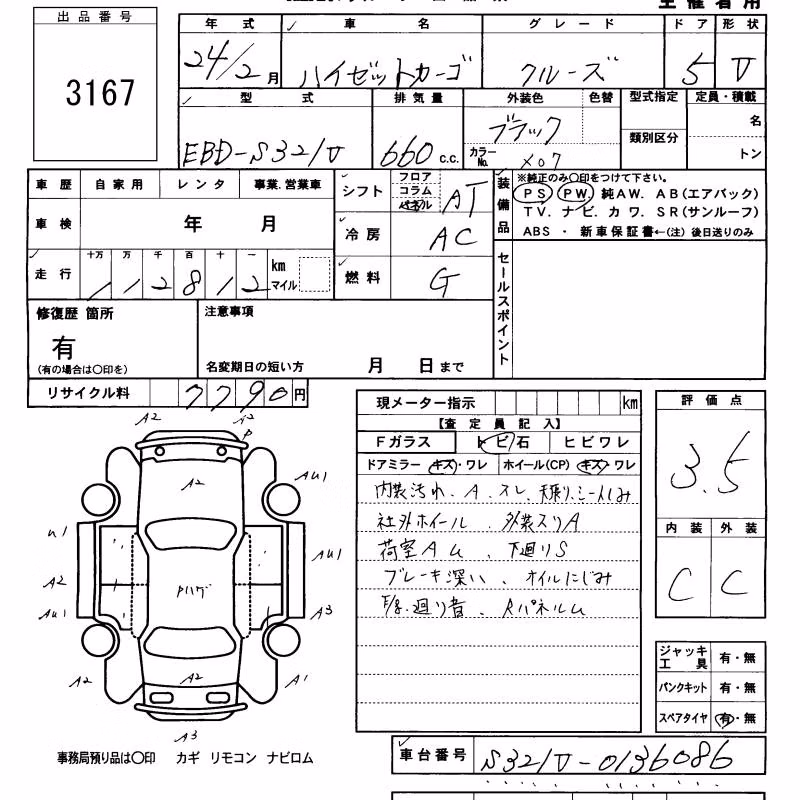 出品番号
3167
年式 車名 グレード ドア 形状
24/2月 ハイゼットカーゴ クルーズ 5 V
型式 排気量 外装色 色替 型式指定 定員・積載
EBD-S321V 660 c.c. ブラック 名
カラーNo. X07 類別区分 トン
車歴 自家用 レンタ 事業.営業車
車検 年 月
走行 十万 万 千 百 十 一 km マイル
112812
シフト フロア コラム パネル AT
冷房 AC
燃料 G
装備品 ※純正のみ〇印をつけて下さい。
PS PW 純AW. AB(エアバック)
TV. ナビ. カワ. SR(サンルーフ)
ABS ・ 新車保証書←(注) 後日送りのみ
セールスポイント
修復歴 箇所
有
(有の場合は〇印を)
注意事項
名変期日の短い方 月 日まで
リサイクル料 7790円
現メーター指示 km
【査定員記入】
Fガラス トビ石 ヒビワレ
ドアミラー キズ・ワレ ホイール(CP) キズ・ワレ
内装汚れ、A、スレ、天張り、シートしみ
社外ホイール、外装スリA
荷室AU、下廻りS
ブレーキ深い、オイルにじみ
F/g廻り音、Rパネルム
評価点
3.5
内装 外装
C C
ジャッキ工具 有・無
パンクキット 有・無
スペアタイヤ 有・無
A2 A2 P
A2
AU1
U1
AU1
A2
Pハゲ
AU1
A3
A2
A2
A1
A3
事務局預り品は〇印 カギ リモコン ナビロム
車台番号 S321V-0136086